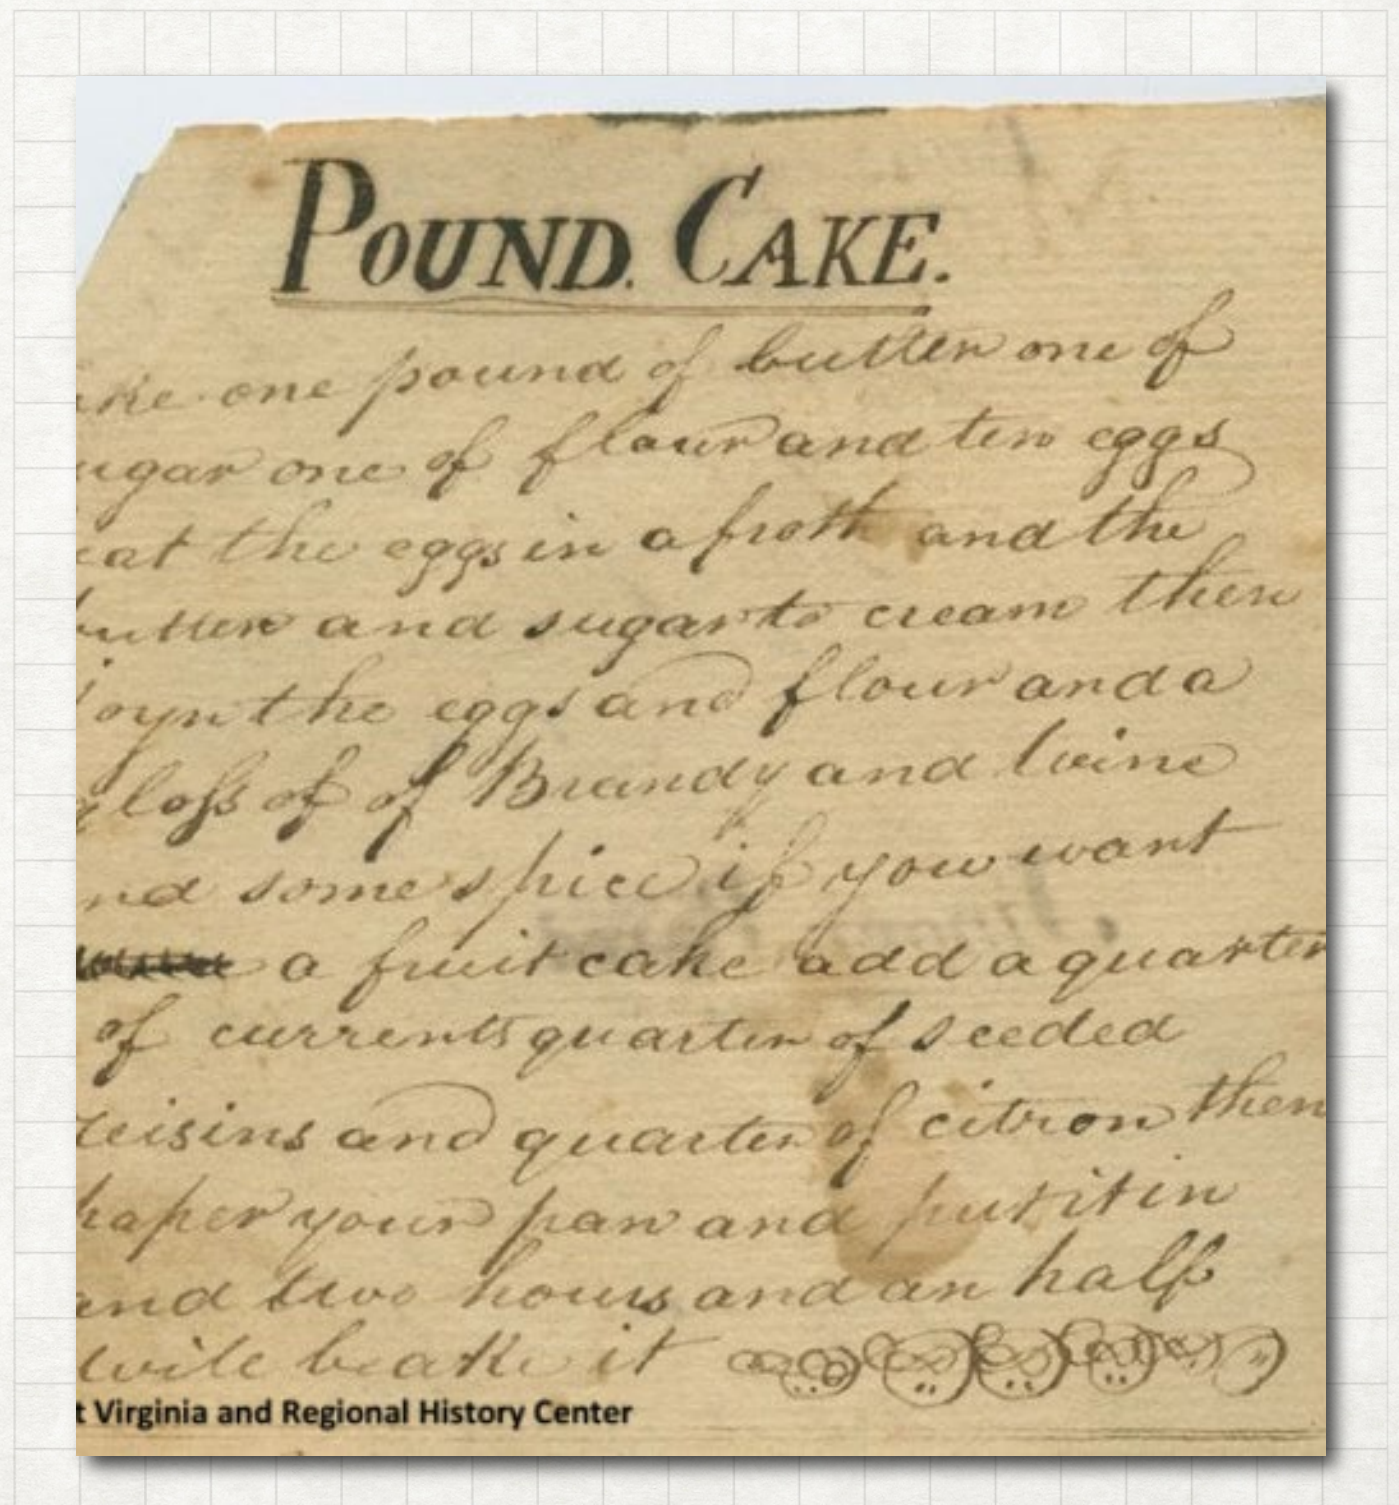 POUND. CAKE.
ake one pound of butter one of
ugar one of flour and ten eggs
eat the eggs in a froth and the
butter and sugar to cream then
joyn the eggs and flour and a
glass of of Brandy and wine
nd some spice if you want
a fruit cake add a quarter
of currents quarter of seeded
reisins and quarter of citron then
paper your pan and put it in
and two hours and an half
will beake it
t Virginia and Regional History Center